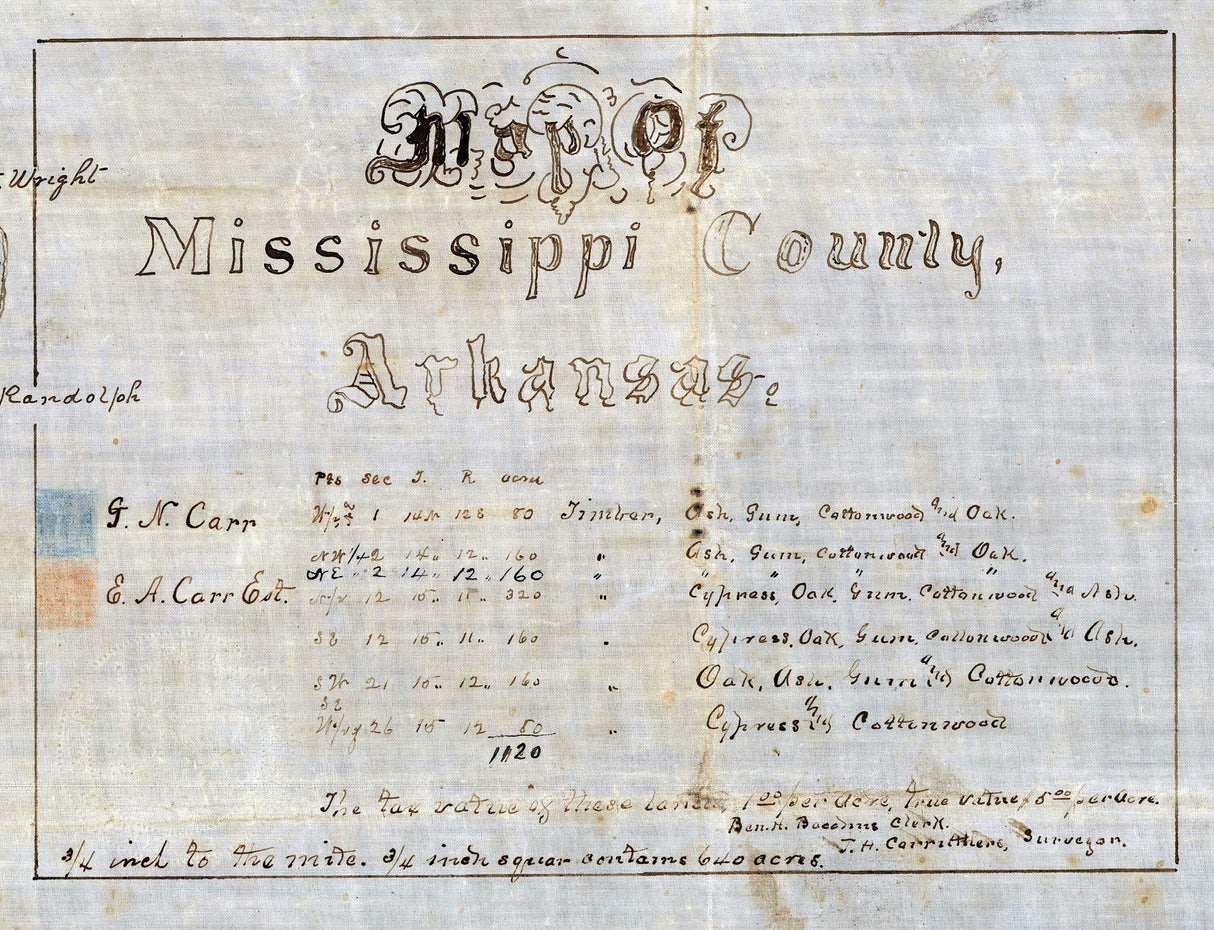 Wright
Map of
Mississippi County,
Arkansas.
Randolph
Pts sec T. R. acres
G. N. Carr W/2 1 14N 12E 80 Timber, Ash, Gum, Cottonwood and Oak.
NW 1/4 2 14 „ 12 „ 160 „ Ash, Gum, Cottonwood and Oak.
NE „ 2 14 „ 12 „ 160 „ „ „ „ „
E. A. Carr Est. 12 15 „ 11 „ 320 „ Cypress, Oak, Gum, Cottonwood and Ash.
SE 12 15 „ 11 „ 160 „ Cypress, Oak, Gum, Cottonwood and Ash.
SW 21 15 „ 12 „ 160 „ Oak, Ash, Gum and Cottonwood.
SE
26 15 12 80 „ Cypress and Cottonwood
1120
The tax value of these lands, 1.00 per acre, true value, 5.00 per acre.
Ben. H. Clerk.
J. H. Carruthers, Surveyor.
3/4 inch to the mile. 3/4 inch squar contains 640 acres.